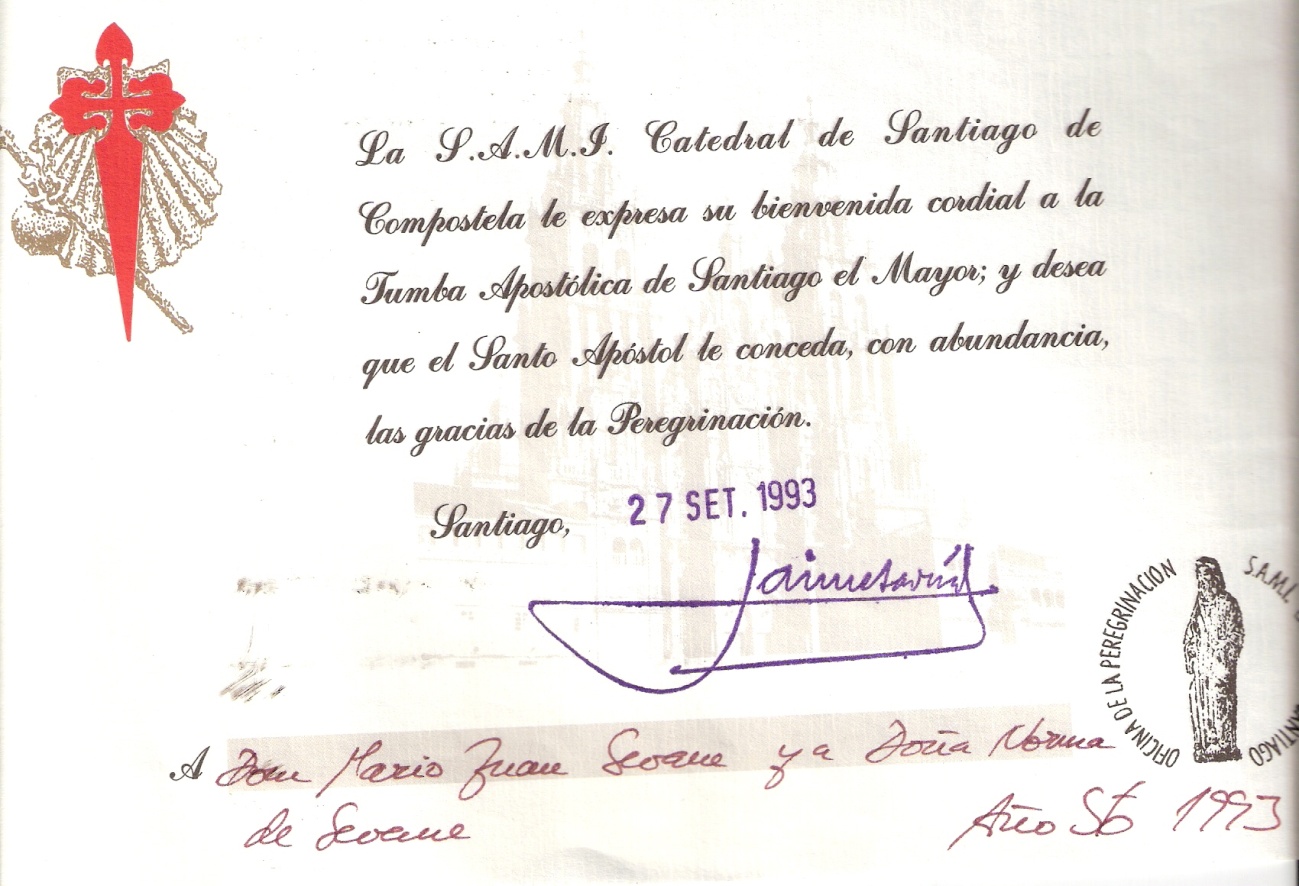 La S.A.M.I. Catedral de Santiago de
Compostela le expresa su bienvenida cordial a la
Tumba Apostólica de Santiago el Mayor; y desea
que el Santo Apóstol le conceda, con abundancia,
las gracias de la Peregrinación.
Santiago, 27 SET. 1993
A Don Mario Juan Seoane y a Doña Norma
de Seoane
Año Sto 1993
OFICINA DE LA PEREGRINACION
S.A.M.I.
SANTIAGO